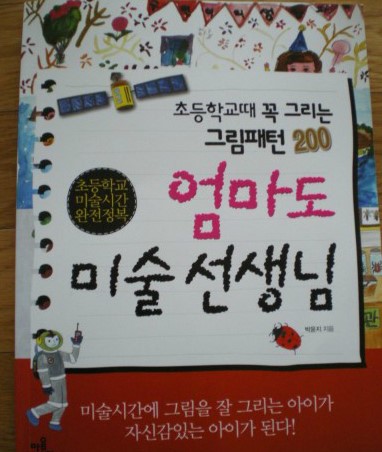 초등학교때 꼭 그리는
그림패턴 200
초등학교
미술시간
완전정복
엄마도
미술 선생님
박용지 지음
관
미술시간에 그림을 잘 그리는 아이가
자신감있는 아이가 된다!